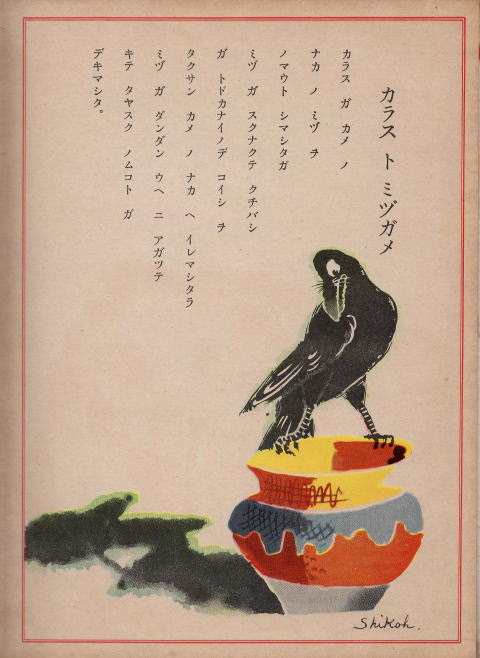 カラス ト ミヅガメ
カラス ガ カメ ノ
ナカ ノ ミヅ ヲ
ノマウト シマシタガ
ミヅ ガ スクナクテ クチバシ
ガ トドカナイノデ コイシ ヲ
タクサン カメ ノ ナカ ヘ イレマシタラ
ミヅ ガ ダンダン ウヘ ニ アガツテ
キテ タヤスク ノムコト ガ
デキマシタ。
Shikoh.